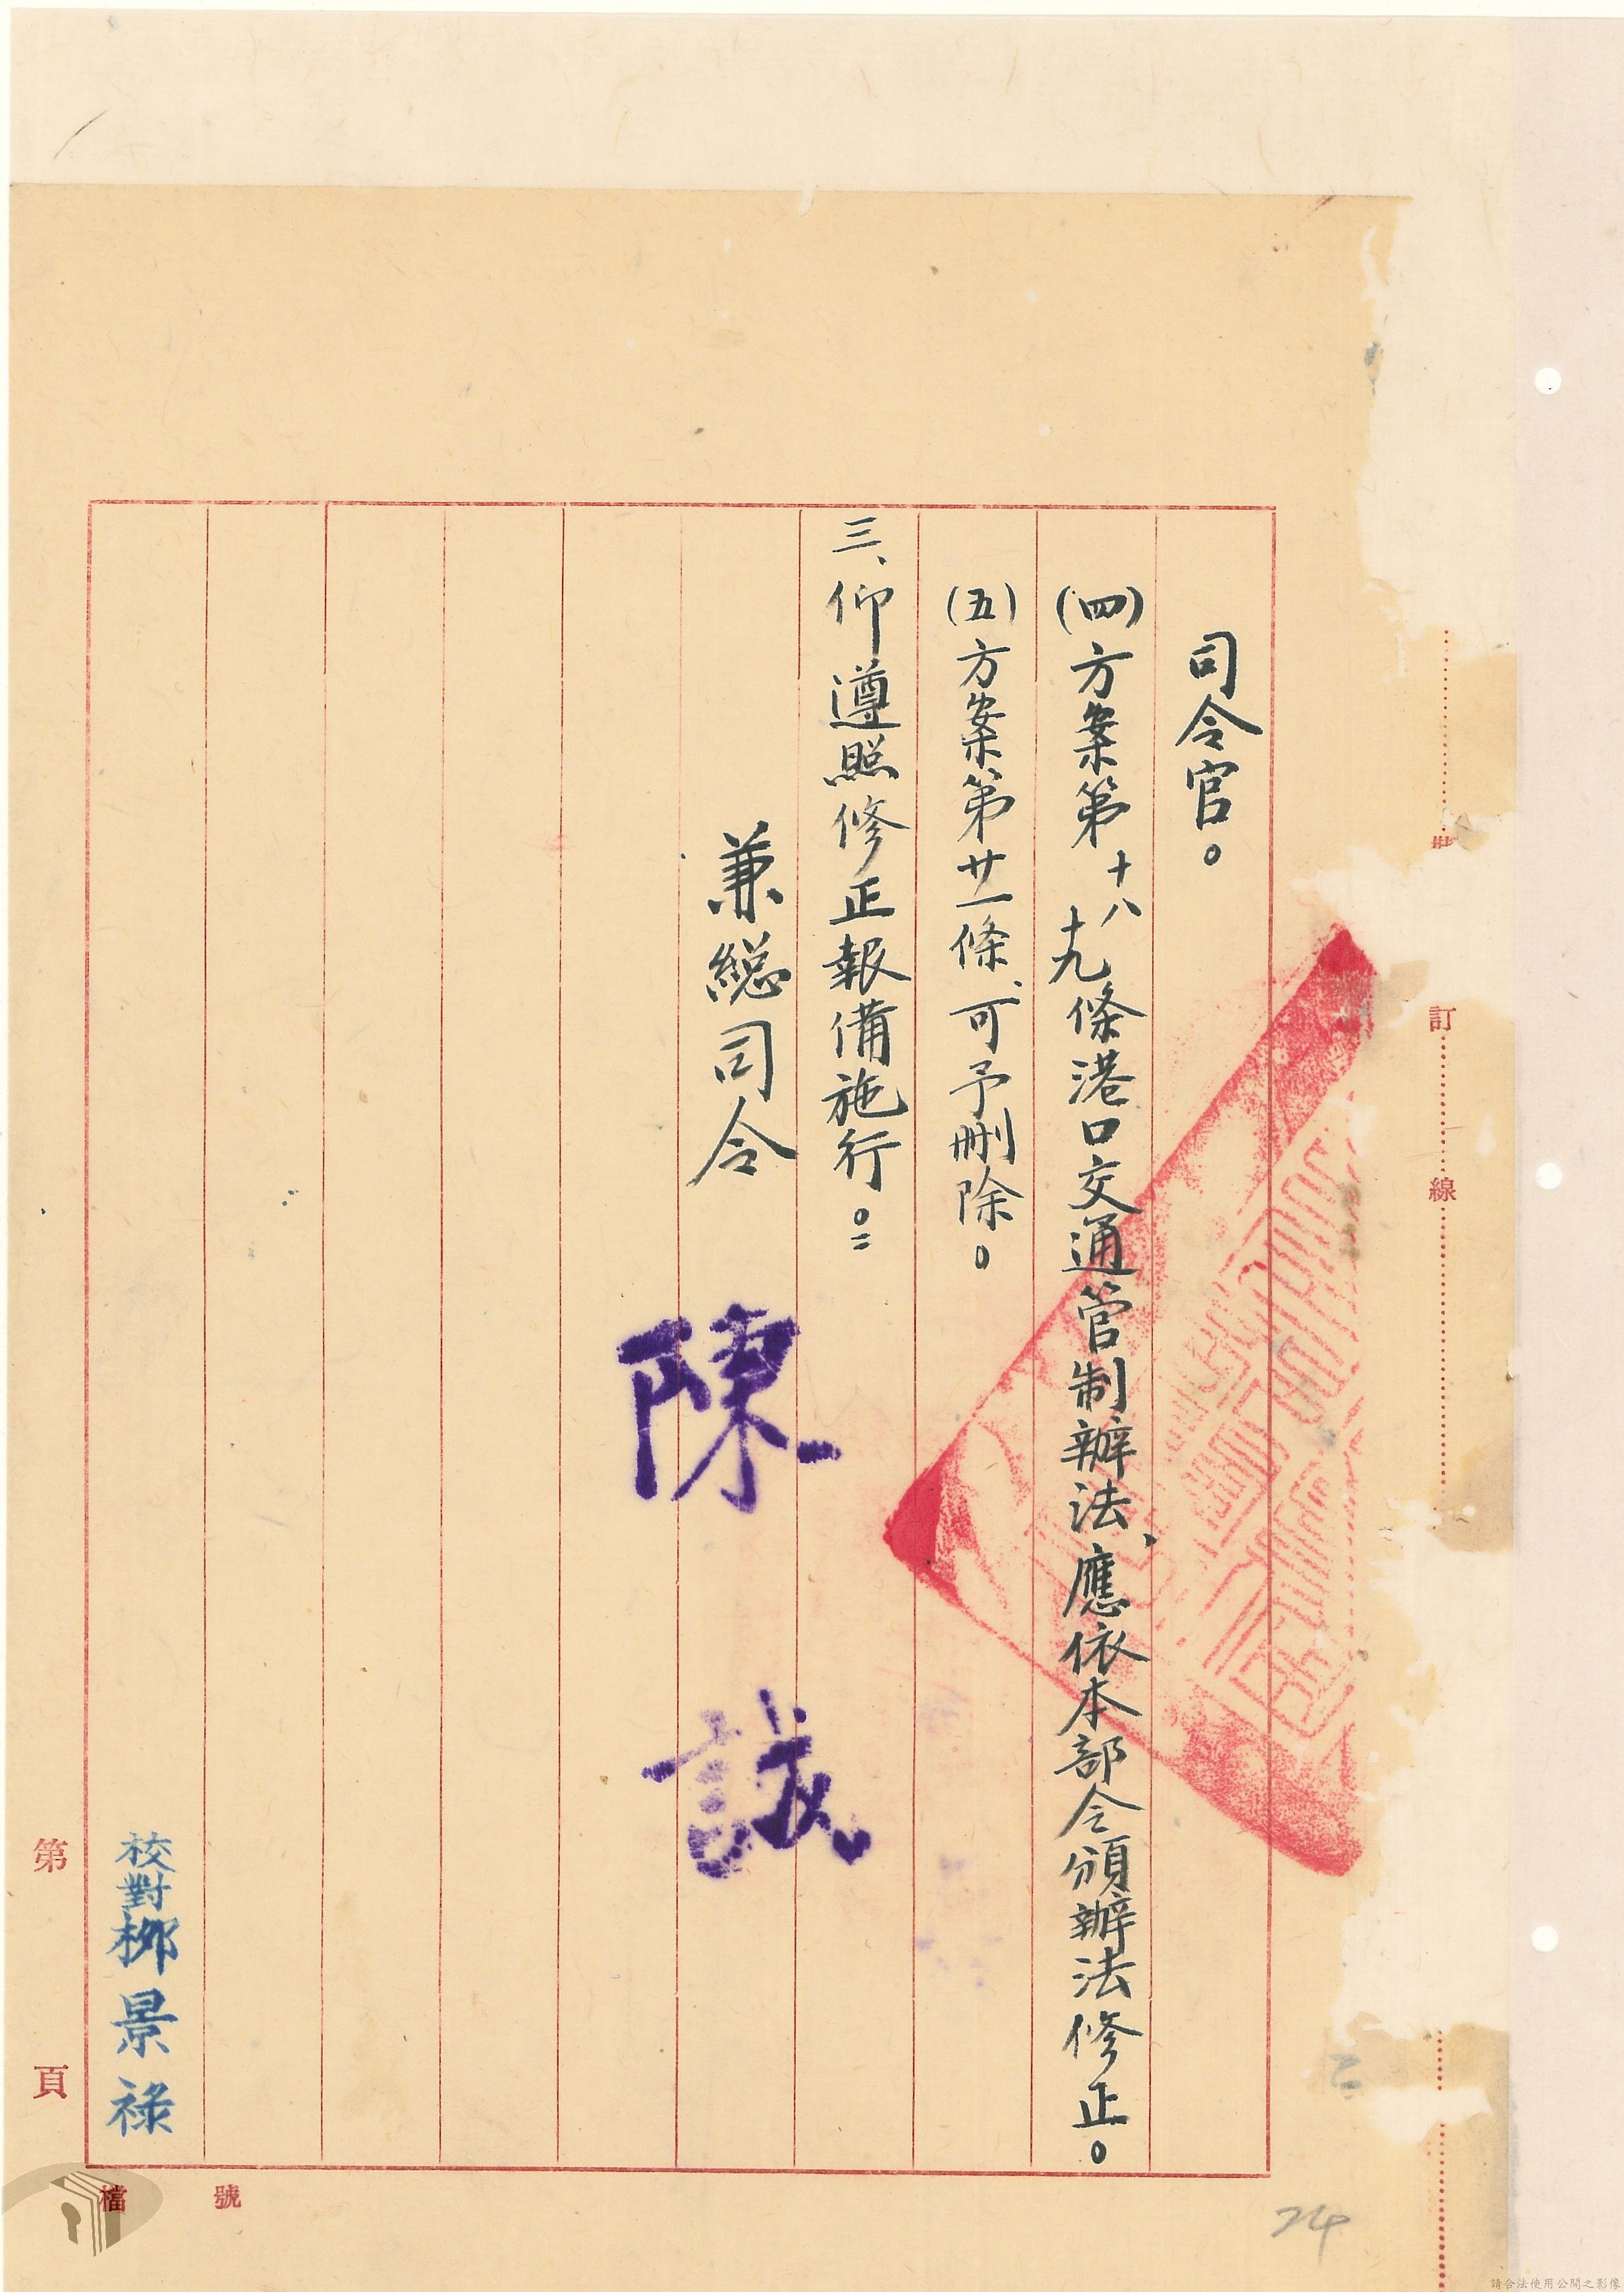 司令官。
(四)方案第十八十九條港口交通管制辦法、應依本部令頒辦法修正。
(五)方案第廿一條、可予刪除。
三、仰遵照修正報備施行。=
兼總司令
陳誠
校對柳景祿
第 頁
檔 號
訂
線
24
請合法使用公開之影像